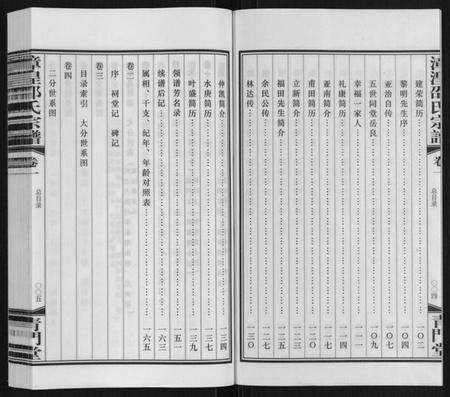 漳湟邵氏宗譜
卷一
总目录
〇〇四
青門堂
建东简历 一〇二
黎明先生序 一〇四
亚治自传 一〇七
五世同堂岳良 一〇九
幸福一家人 一一一
礼康简历 一一四
亚南简介 一一七
甫田简历 一二〇
立新简介 一二三
福田先生简介 一二五
余民公传 一二七
林达传 一三〇
仲凯简介 一三四
水庚简历 一三七
叶盛简历 一三九
领谱芳名录 一五一
续谱后记 一六三
属相、干支、纪年、年龄对照表 一六五
卷二
序 祠堂记 碑记
卷三
目录索引 大分世系图
卷四
二分世系图
漳湟邵氏宗譜
卷一
总目录
〇〇五
青門堂